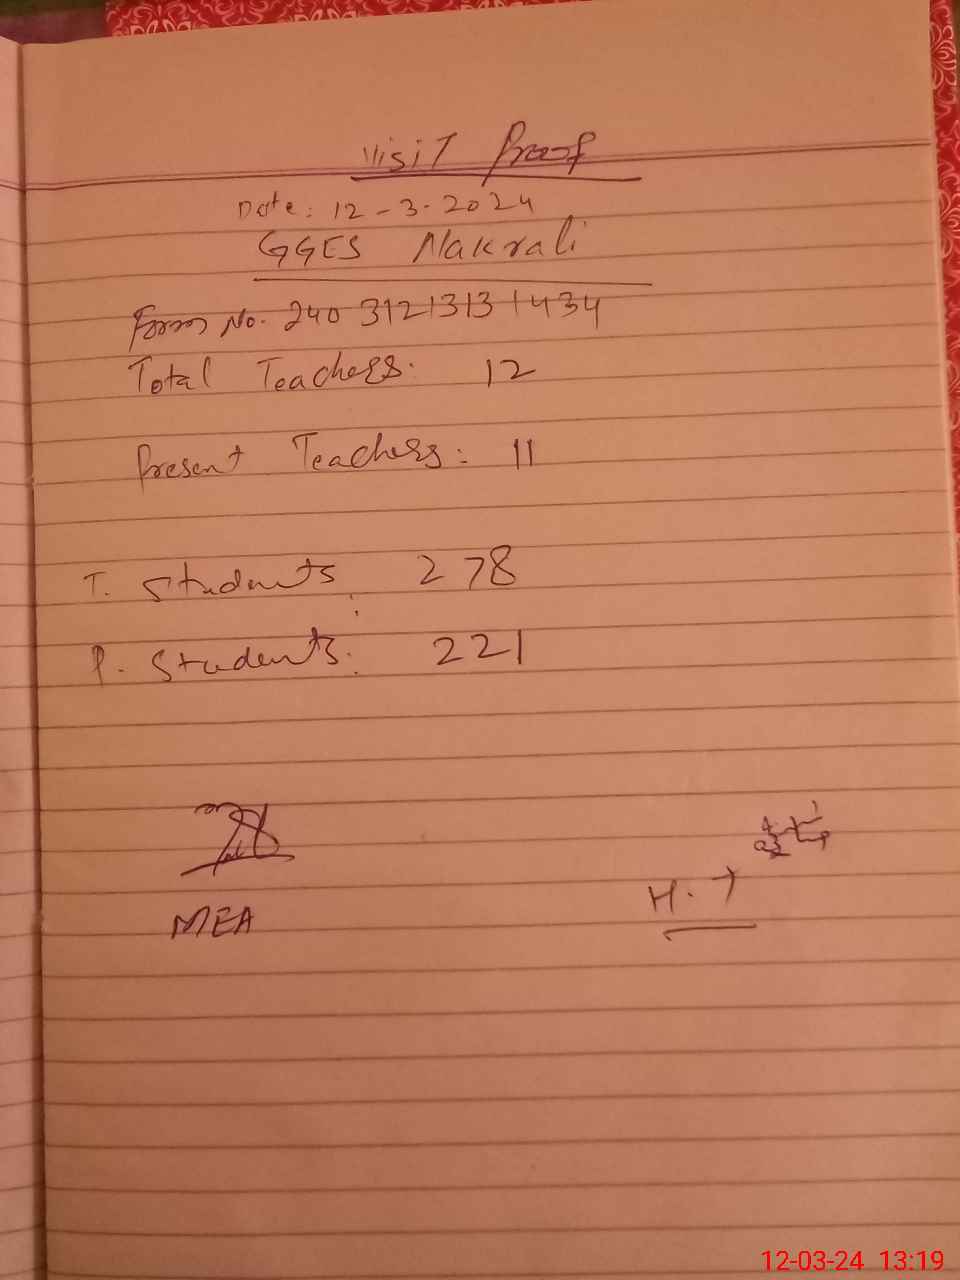 Visit Proof
Date: 12-3-2024
GGES Nakrali
Form No. 2403121313 1434
Total Teachers: 12
Present Teachers: 11
T. Students: 278
P. Students: 221
MEA
H.T
12-03-24 13:19